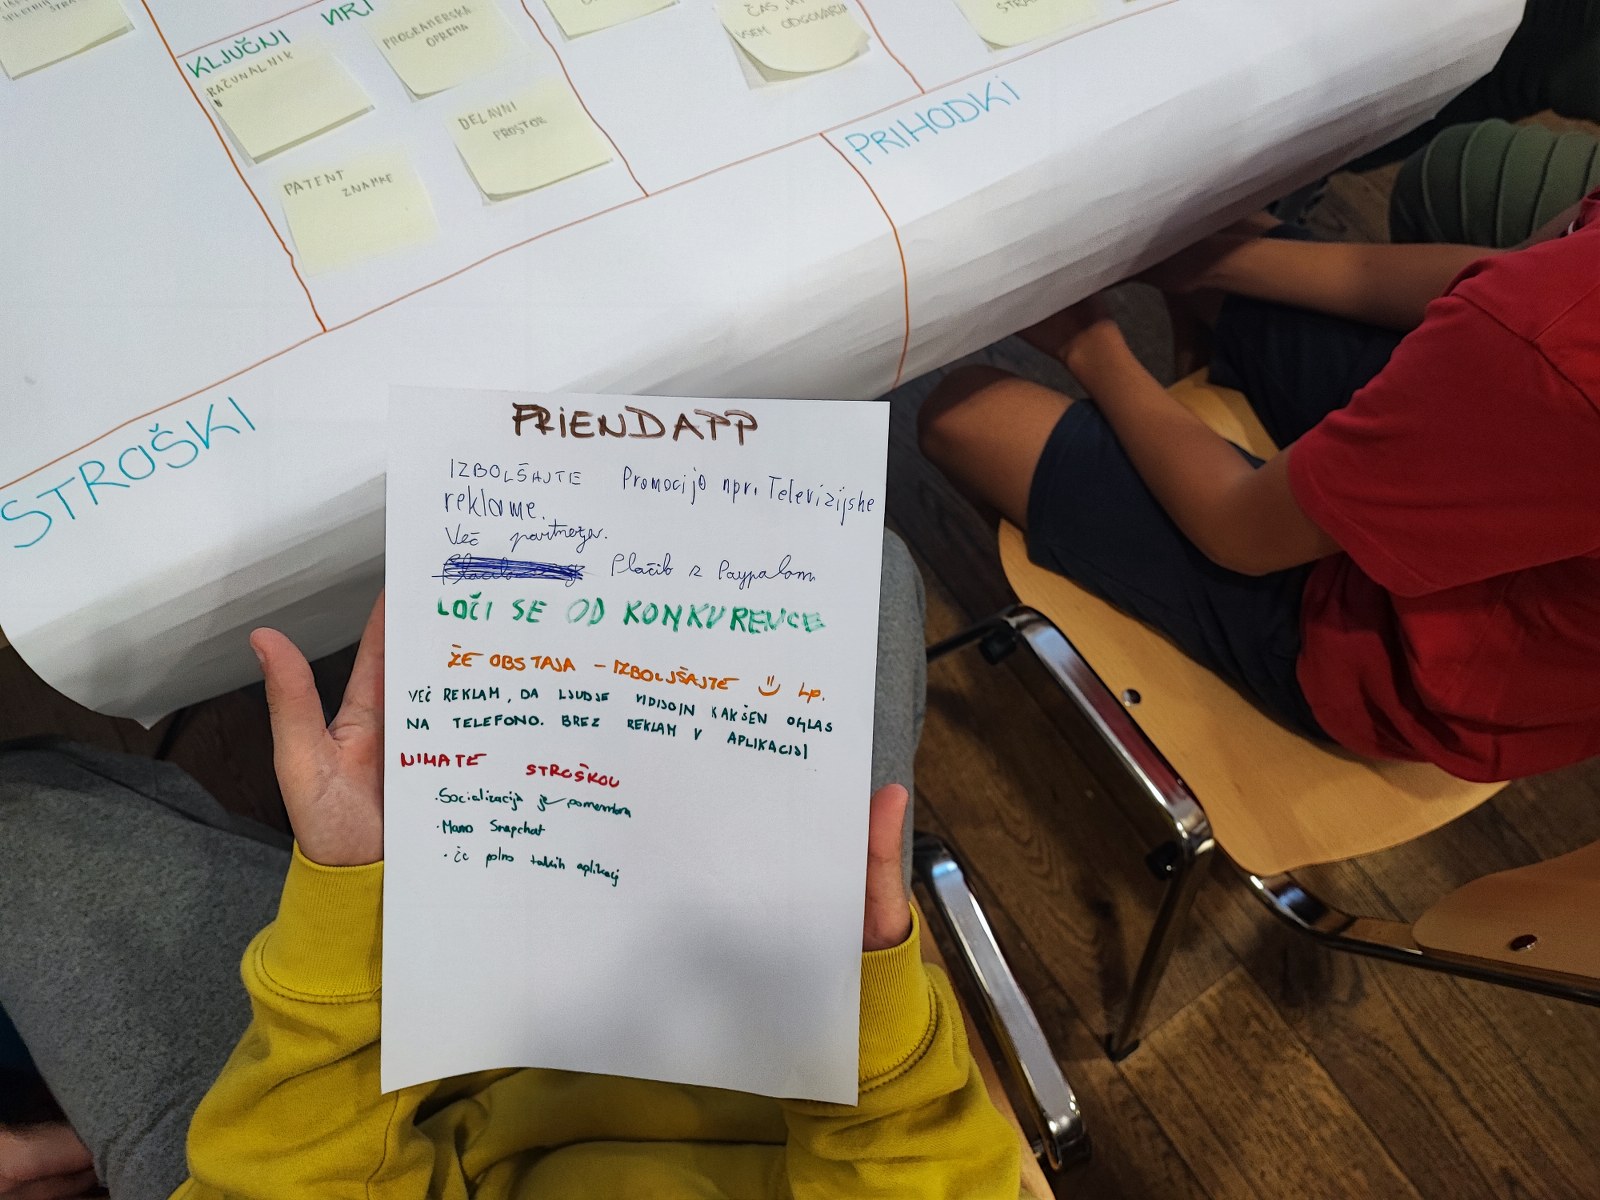 KLJUČNI VIRI
RAČUNALNIK
PROGRAMERSKA
OPREMA
DELAVNI
PROSTOR
PATENT
ZNAMKE
ČAS, KI
VSEM ODGOVARJA
PRIHODKI
STROŠKI
FRIENDAPP
IZBOLŠAJTE Promocijo npr. Televizijske
reklame.
Več partnerjev.
Plačilo z Paypalom
LOČI SE OD KONKURENCE
ŽE OBSTAJA - IZBOLJŠAJTE Lp.
VEČ REKLAM, DA LJUDJE VIDIJO KAKŠEN OGLAS
NA TELEFONO. BREZ REKLAM V APLIKACIJI
NIMATE STROŠKOU
·Socializacija je pomembna
·Mamo Snapchat
·že polno takih aplikacij